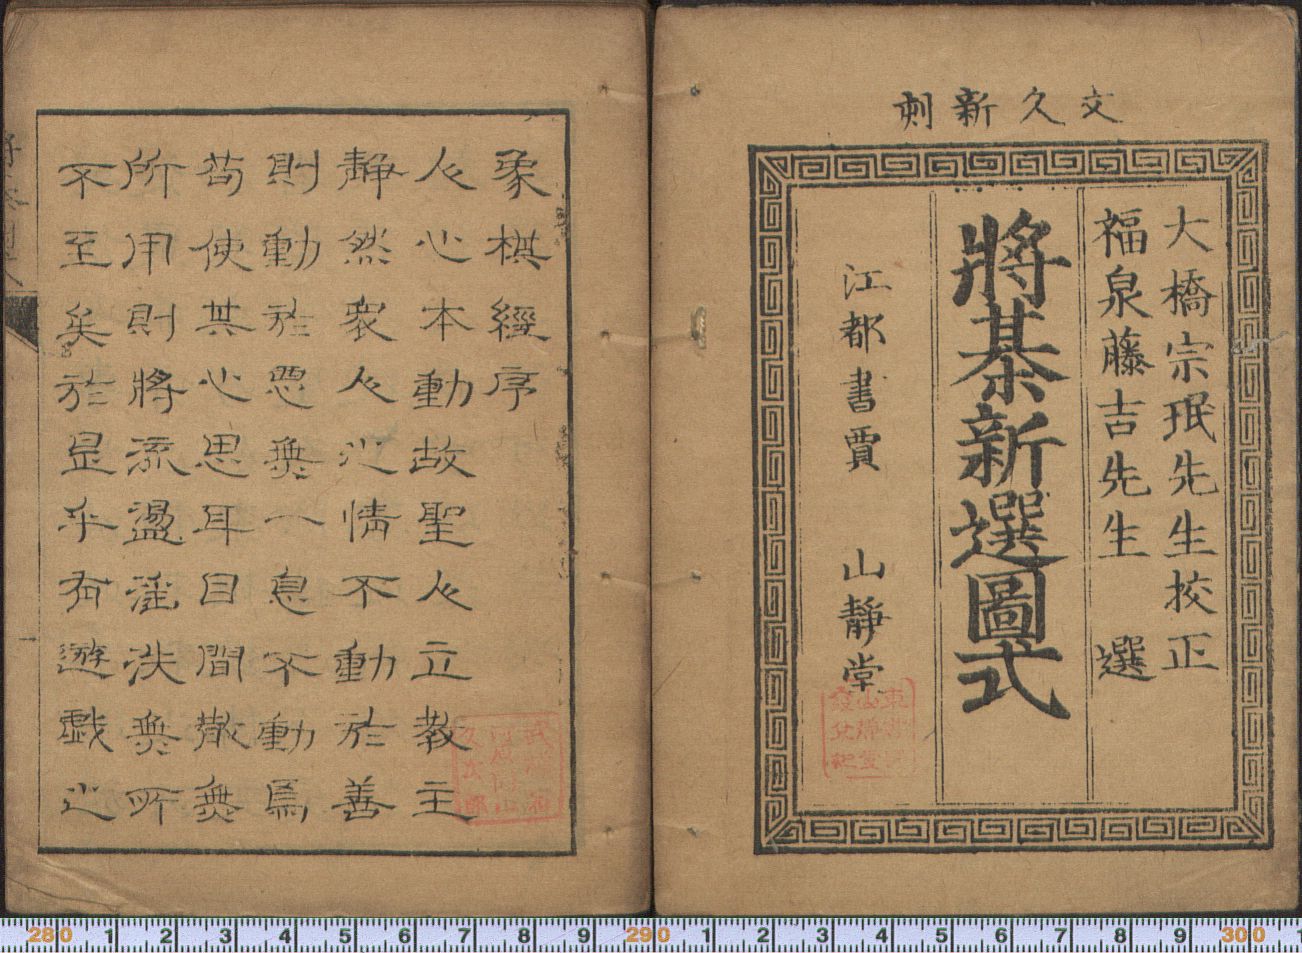 文久新刻
大橋宗珉先生挍正
福泉藤吉先生 選
將棊新選圖式
江都書賈 山靜堂
象棋經序
人心本動故聖人立教主
靜然衆人之情不動於善
則動於惡無一息不動焉
苟使其心思耳目間散無
所用則將流盪淫泆無所
不至矣於是乎有遊戯之
280 1 2 3 4 5 6 7 8 9 290 1 2 3 4 5 6 7 8 9 300 1